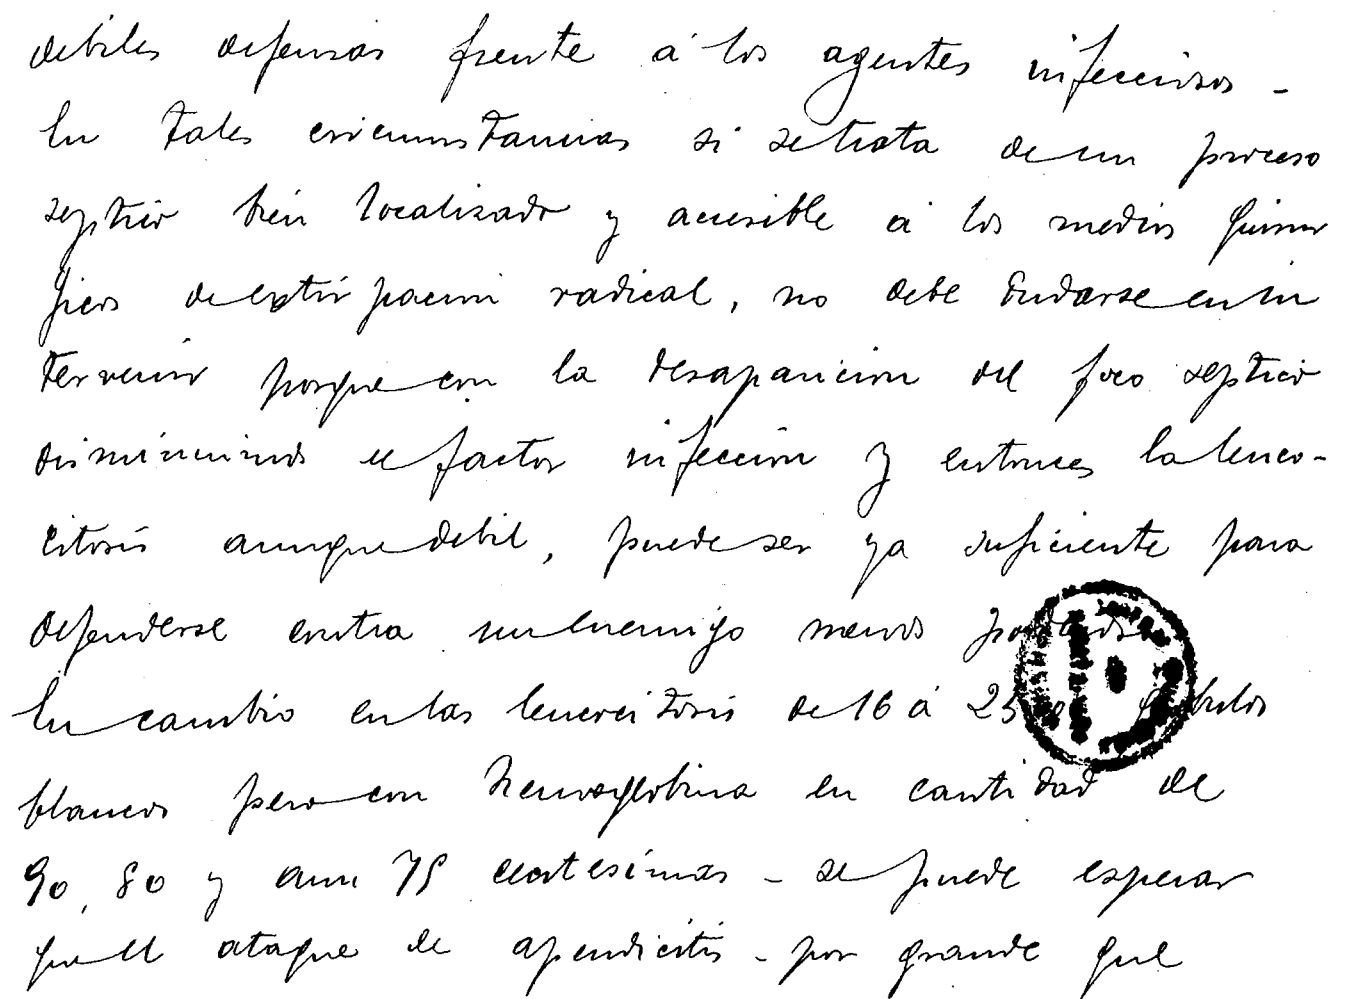 debiles defensas frente á los agentes infecciosos -
En tales circunstancias si se trata de un proceso
septico bién localizado y accesible á los medios quirur
gicos de extirpación radical, no debe dudarse en in
tervenir porque con la desaparicion del foco septico
disminuimos el factor infección y entonces la leuco-
citosis aunque debil, puede ser ya suficiente para
defenderse contra un enemigo menos poderoso
En cambio en las leucocitosis de 16 á 25 globulos
blancos pero con hemoglobina en cantidad de
90, 80 y aun 75 centesimas - se puede esperar
que el ataque de apendicitis - por grande que